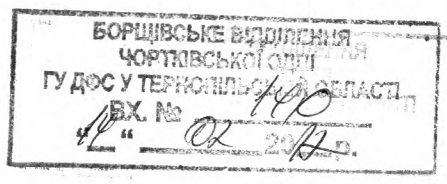 БОРЩІВСЬКЕ ВІДДІЛЕННЯ
ЧОРТКІВСЬКОЇ ОДПІ
ГУ ДФС У ТЕРНОПІЛЬСЬКІЙ ОБЛАСТІ
ВХ. № 140
"14" 02 2017р.